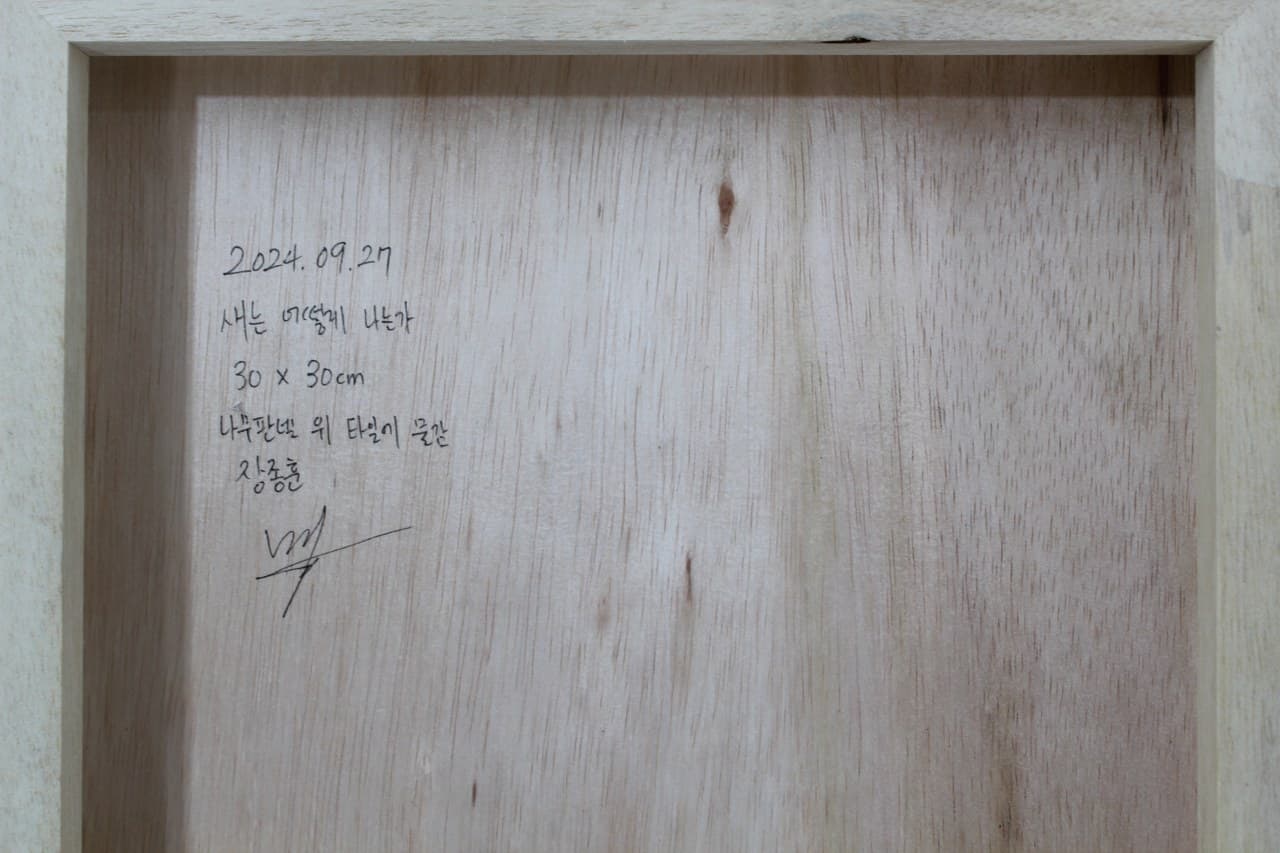 2024.09.27
새는 어떻게 나는가
30 x 30cm
나무판넬 위 타일에 물감
장종훈